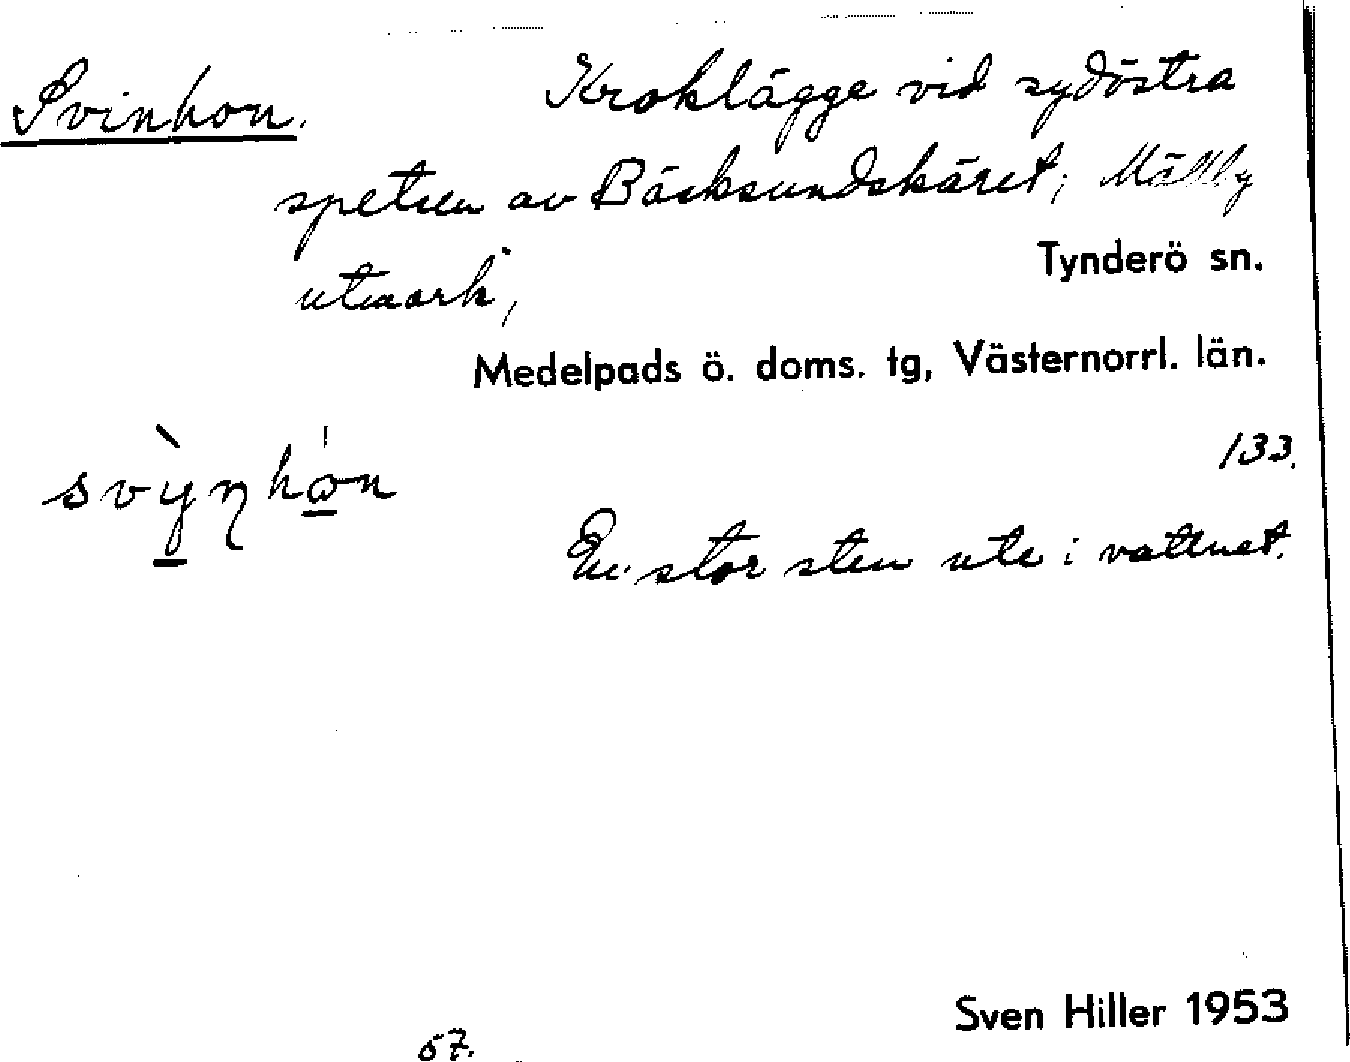 Svinhon. Kroklägge vid sydöstra
spetsen av Bäcksundskäret; Målby
utmark,
Tynderö sn.
Medelpads ö. doms. tg, Västernorrl. län.
133.
En stor sten ute i vattnet.
Sven Hiller 1953
57.